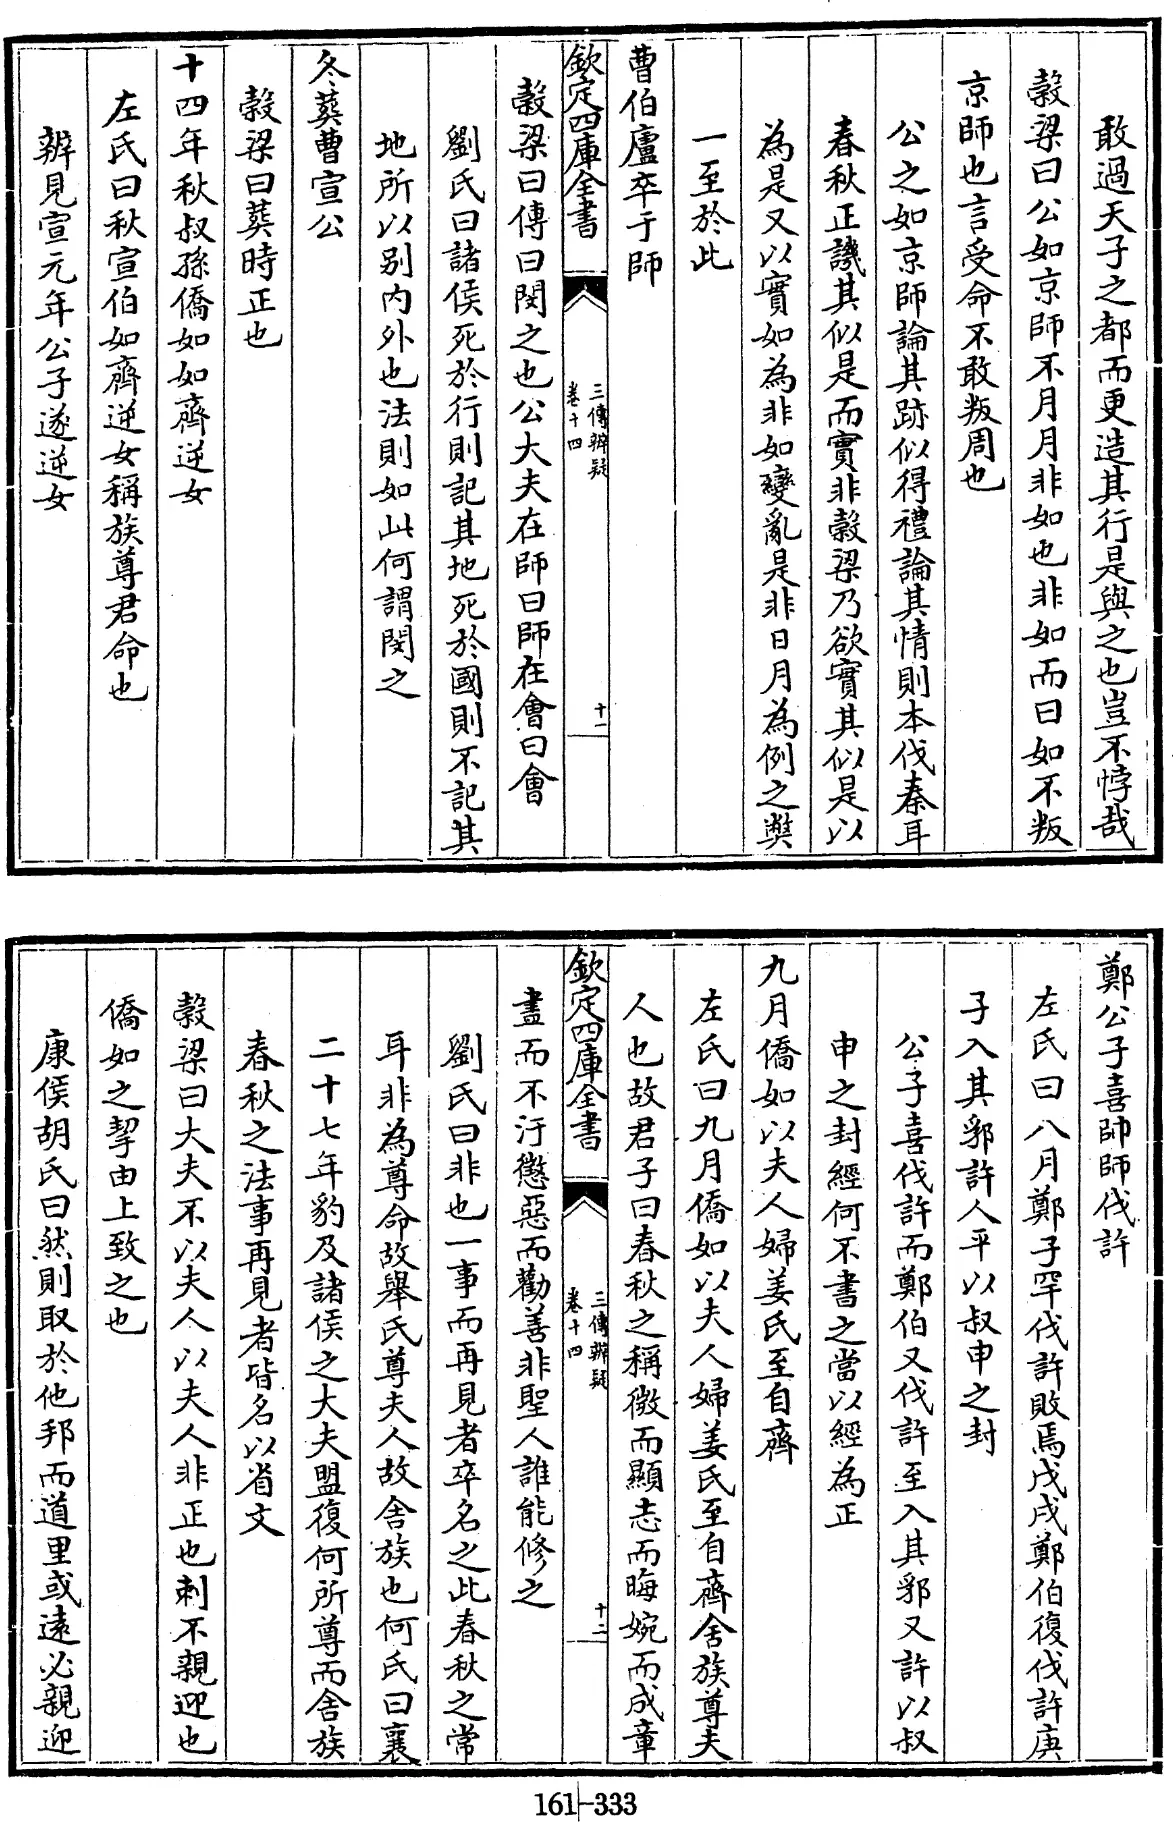 敢過天子之都而更造其行是與之也豈不悖哉
穀梁曰公如京師不月月非如也非如而曰如不叛
京師也言受命不敢叛周也
公之如京師論其跡似得禮論其情則本伐秦耳
春秋正譏其似是而實非穀梁乃欲實其似是以
為是又以實如為非如變亂是非日月為例之弊
一至於此
曹伯廬卒于師
欽定四庫全書
三傳辨疑
卷十四
十一
穀梁曰傳曰閔之也公大夫在師曰師在會曰會
劉氏曰諸侯死於行則記其地死於國則不記其
地所以别内外也法則如此何謂閔之
冬葬曹宣公
穀梁曰葬時正也
十四年秋叔孫僑如如齊逆女
左氏曰秋宣伯如齊逆女稱族尊君命也
辨見宣元年公子遂逆女
鄭公子喜帥師伐許
左氏曰八月鄭子罕伐許敗焉戊戌鄭伯復伐許庚
子入其郛許人平以叔申之封
公子喜伐許而鄭伯又伐許至入其郛又許以叔
申之封經何不書之當以經為正
九月僑如以夫人婦姜氏至自齊
左氏曰九月僑如以夫人婦姜氏至自齊舍族尊夫
人也故君子曰春秋之稱微而顯志而晦婉而成章
欽定四庫全書
三傳辨疑
卷十四
十二
盡而不汙懲惡而勸善非聖人誰能修之
劉氏曰非也一事而再見者卒名之此春秋之常
耳非為尊命故舉氏尊夫人故舍族也何氏曰襄
二十七年豹及諸侯之大夫盟復何所尊而舍族
春秋之法事再見者皆名以省文
穀梁曰大夫不以夫人以夫人非正也刺不親迎也
僑如之挈由上致之也
康侯胡氏曰然則取於他邦而道里或遠必親迎
161-333